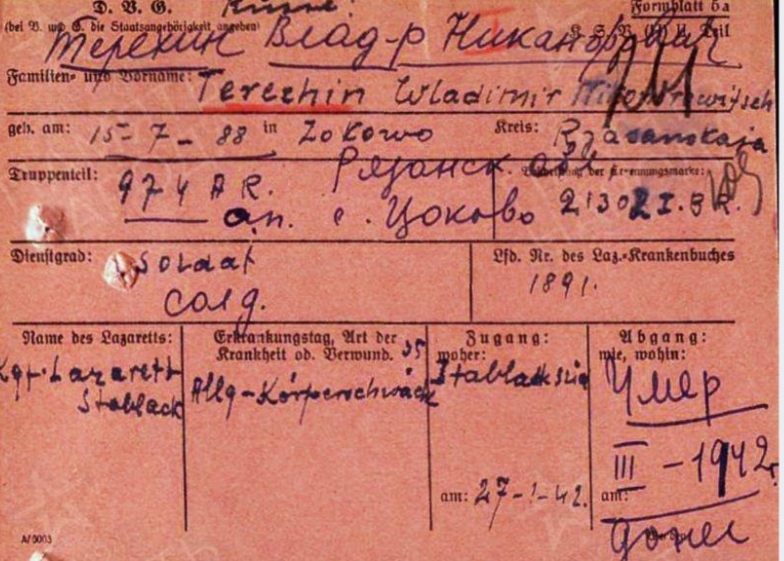 D. V. G. Russe Formblatt 5a
(bei B. und G. die Staatsangehörigkeit angeben) K. S. V. II. Teil
Терехин Влад-р Никанорович
Familien- und Vorname: Terechin Wladimir
geb. am: 15-7-88 in Zokowo Kreis: Rjasanskaja
Рязанск. обл.
Truppenteil: 974 A R. der Erkennungsmarke: 21302 I. B
с. Цоково
Dienstgrad: Soldat Lfd. Nr. des Laz.-Krankenbuches
солд. 1891.
Name des Lazaretts: Erkrankungstag, Art der Krankheit od. Verwund. Zugang: woher: Abgang: wie, wohin:
Kgf. Lazarett Stablack Allg-Körperschwäche Stablack Умер
III - 1942 г.
am: 27-1-42. am:
донес
A/0003